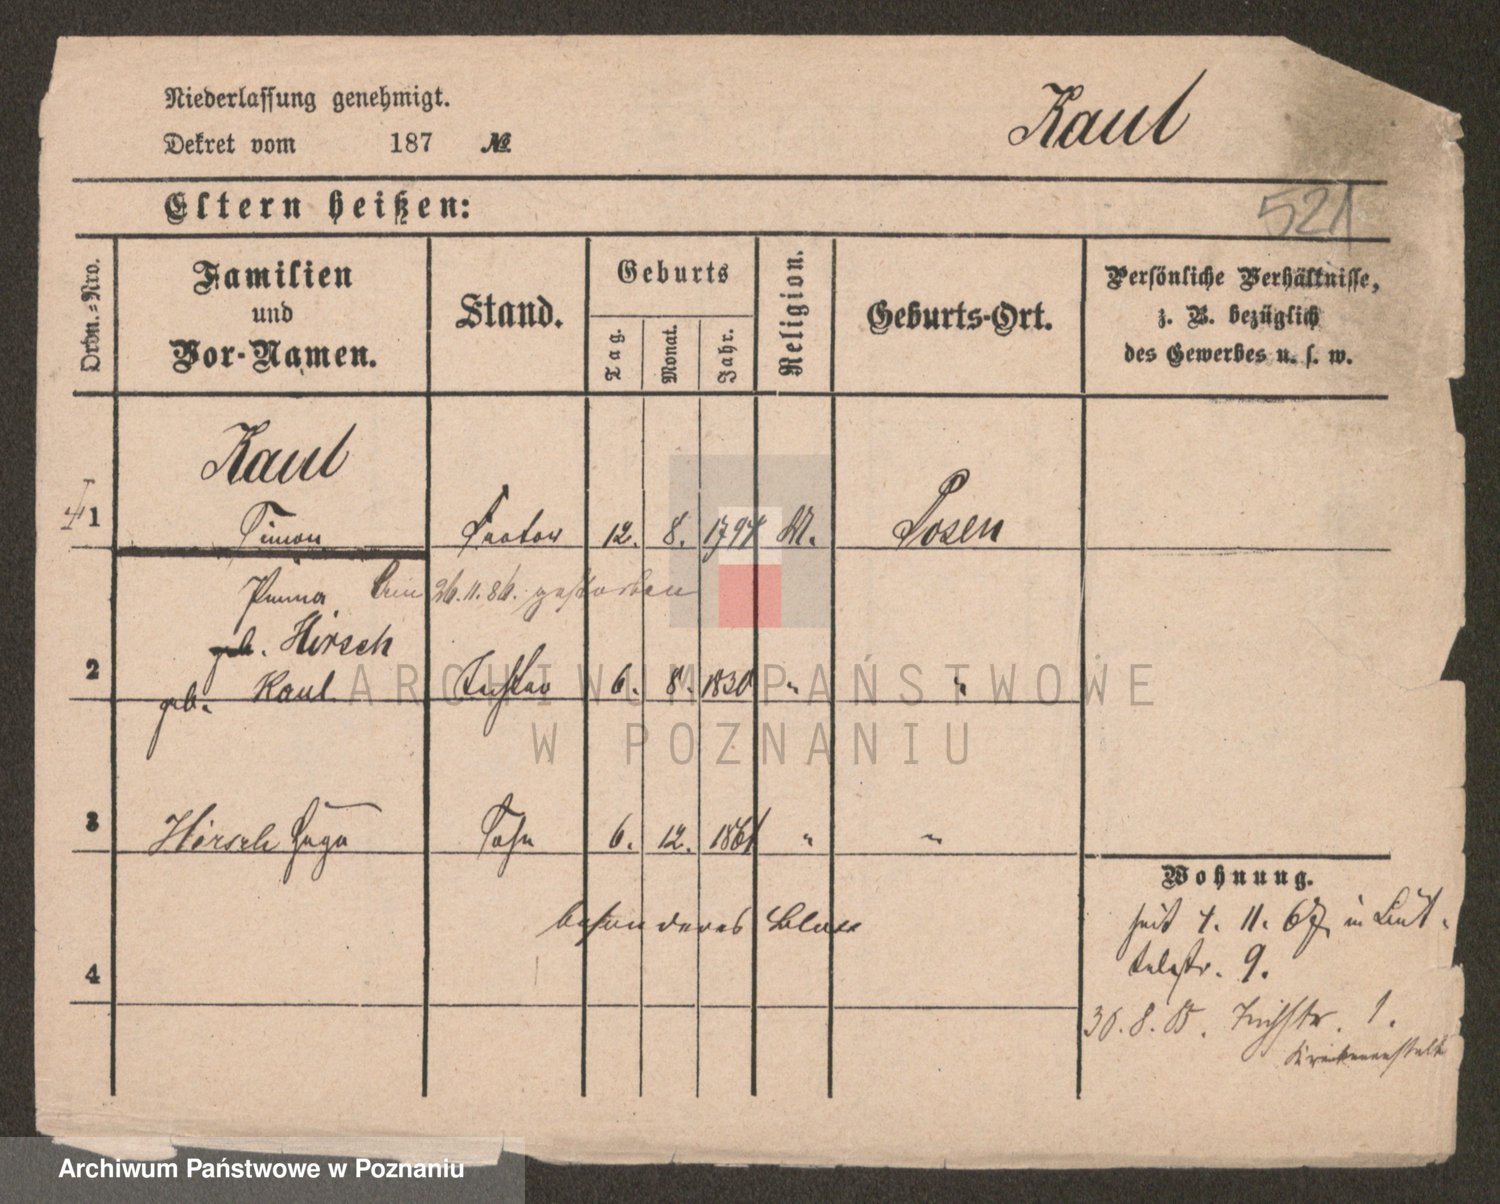 Niederlassung genehmigt.
Dekret vom 187 №
Kaul
521
Eltern heißen:
Ordn.-Nro.
Familien
und
Vor-Namen.
Stand.
Geburts
Tag.
Monat.
Jahr.
Religion.
Geburts-Ort.
Persönliche Verhältnisse,
z. B. bezüglich
des Gewerbes u. s. w.
Kaul
1 Simon 12. 8. 1794 M. Posen
26. 11. 86. gestorben
geb. Hirsch
2 geb. Kaul Tochter 6. 8. 1830 " "
3 Hirsch Hugo Sohn 6. 12. 1861 " "
besonderes Blatt
4
Wohnung.
seit 4. 11. 67 in
9.
30. 8. 1.
ARCHIWUM PAŃSTWOWE
W POZNANIU
Archiwum Państwowe w Poznaniu